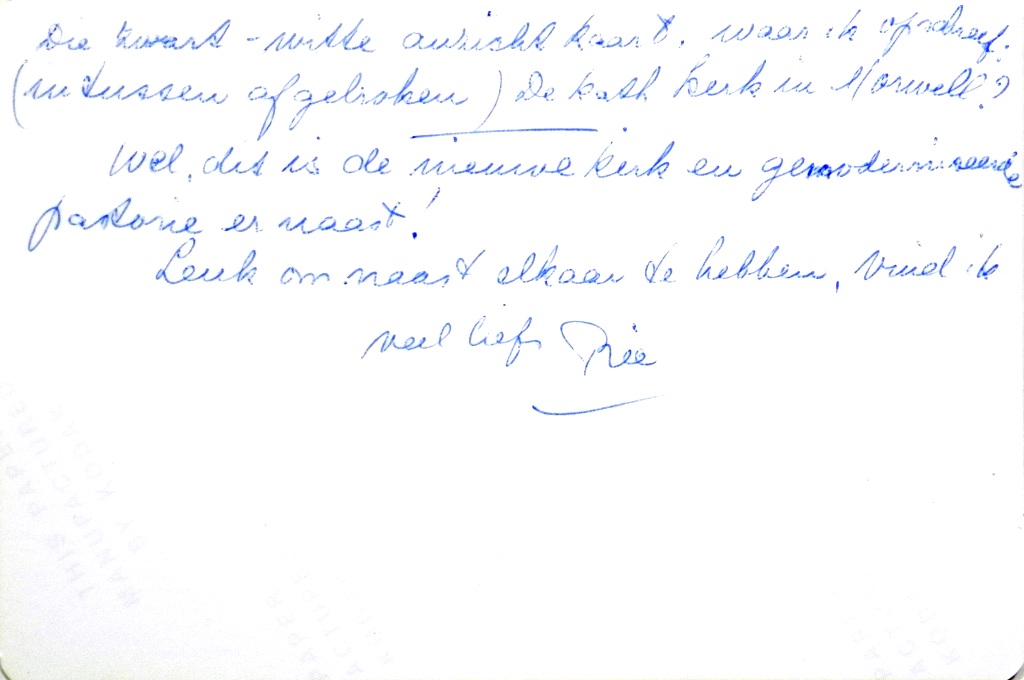 Die zwart-witte ansicht kaart. waar ik opschreef.
(intussen afgebroken) De kath kerk in Morwell??
Wel, dit is de nieuwe kerk en gemoderniseerde
pastorie er naast!
Leuk om naast elkaar te hebben, vind ik
veel liefs Riee
THIS PAPER
MANUFACTURED
BY KODAK